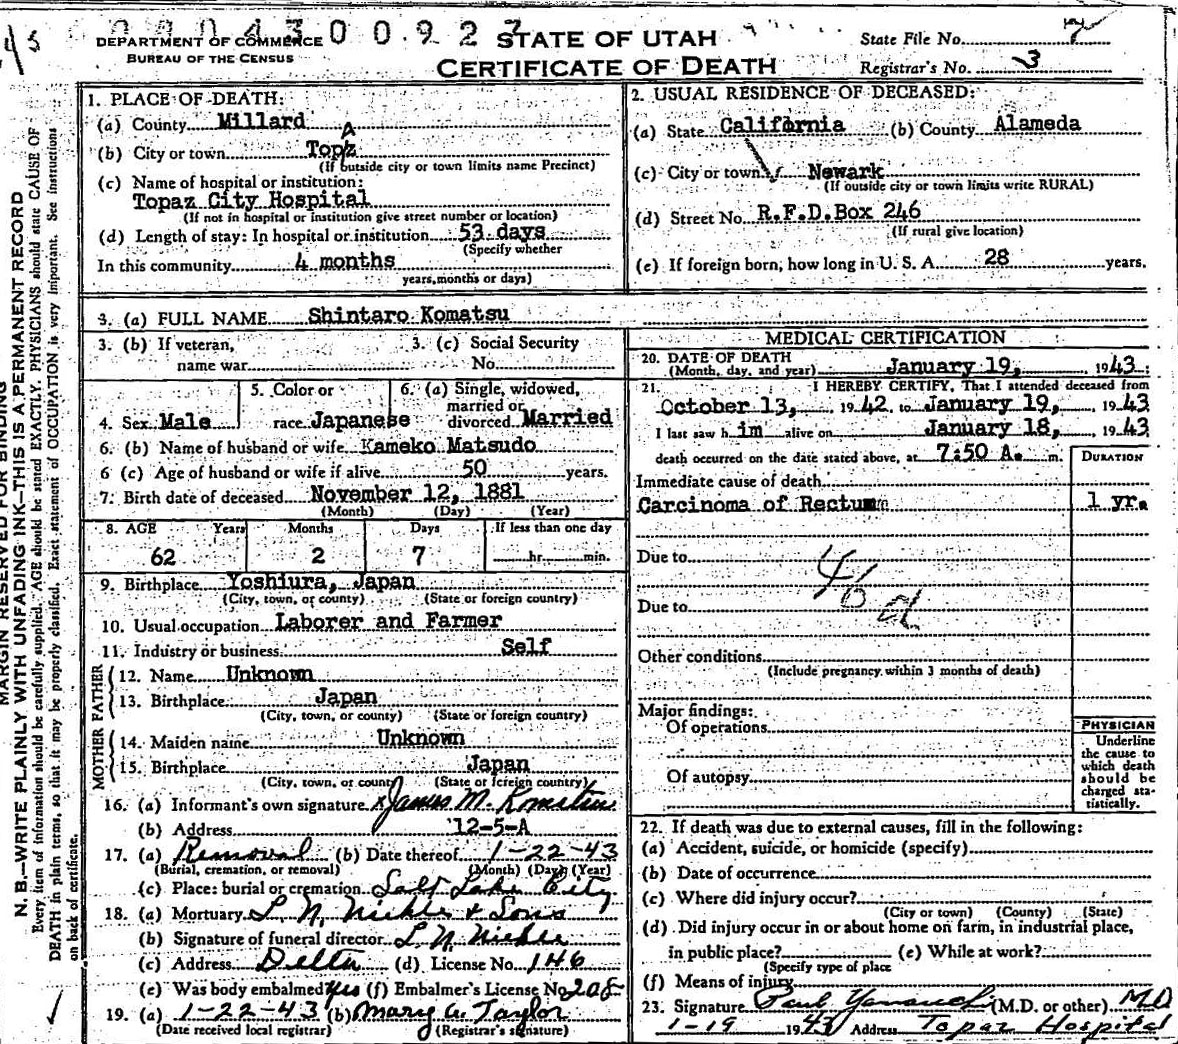 0 9 0 4 3 0 0 9 2 7
DEPARTMENT OF COMMERCE
BUREAU OF THE CENSUS
STATE OF UTAH
CERTIFICATE OF DEATH
State File No. 7
Registrar's No. 3
MARGIN RESERVED FOR BINDING
N. B.—WRITE PLAINLY WITH UNFADING INK—THIS IS A PERMANENT RECORD
Every item of information should be carefully supplied. AGE should be stated EXACTLY. PHYSICIANS should state CAUSE OF
DEATH in plain terms, so that it may be properly classified. Exact statement of OCCUPATION is very important. See instructions
on back of certificate.
1. PLACE OF DEATH:
(a) County Millard
(b) City or town Topaz
(If outside city or town limits name Precinct)
(c) Name of hospital or institution:
Topaz City Hospital
(If not in hospital or institution give street number or location)
(d) Length of stay: In hospital or institution 53 days
(Specify whether
In this community 4 months
years, months or days)
2. USUAL RESIDENCE OF DECEASED:
(a) State California (b) County Alameda
(c) City or town Newark
(If outside city or town limits write RURAL)
(d) Street No. R.F.D.Box 246
(If rural give location)
(e) If foreign born, how long in U. S. A. 28 years.
3. (a) FULL NAME Shintaro Komatsu
3. (b) If veteran,
name war
3. (c) Social Security
No.
4. Sex Male
5. Color or
race Japanese
6. (a) Single, widowed,
married or
divorced Married
6. (b) Name of husband or wife Kameko Matsudo
6 (c) Age of husband or wife if alive 50 years.
7. Birth date of deceased November 12, 1881
(Month) (Day) (Year)
8. AGE Years Months Days If less than one day
62 2 7 hr. min.
9. Birthplace Yoshiura, Japan
(City, town, or county) (State or foreign country)
10. Usual occupation Laborer and Farmer
11. Industry or business Self
FATHER
12. Name Unknown
13. Birthplace Japan
(City, town, or county) (State or foreign country)
MOTHER
14. Maiden name Unknown
15. Birthplace Japan
(City, town, or county) (State or foreign country)
16. (a) Informant's own signature x James M. Komatsu
(b) Address 12-5-A
17. (a) Removal (b) Date thereof 1-22-43
(Burial, cremation, or removal) (Month) (Day) (Year)
(c) Place: burial or cremation Salt Lake City
18. (a) Mortuary L. N. Nickle & Sons
(b) Signature of funeral director L N Nickle
(c) Address Delta (d) License No. 146
(e) Was body embalmed yes (f) Embalmer's License No 208
19. (a) 1-22-43 (b) Mary A. Taylor
(Date received local registrar) (Registrar's signature)
MEDICAL CERTIFICATION
20. DATE OF DEATH
(Month, day, and year) January 19, 1943
21. I HEREBY CERTIFY, That I attended deceased from
October 13, 1942, to January 19, 1943
I last saw him alive on January 18, 1943
death occurred on the date stated above, at 7:50 A. m.
DURATION
Immediate cause of death
Carcinoma of Rectum 1 yr.
Due to
46 d
Due to
Other conditions
(Include pregnancy within 3 months of death)
Major findings:
Of operations
Of autopsy
PHYSICIAN
Underline
the cause to
which death
should be
charged sta-
tistically.
22. If death was due to external causes, fill in the following:
(a) Accident, suicide, or homicide (specify)
(b) Date of occurrence
(c) Where did injury occur?
(City or town) (County) (State)
(d) Did injury occur in or about home on farm, in industrial place,
in public place? (e) While at work?
(Specify type of place
(f) Means of injury
23. Signature Paul Yamauchi (M.D. or other) M.D
1-19 1943 Address Topaz Hospital